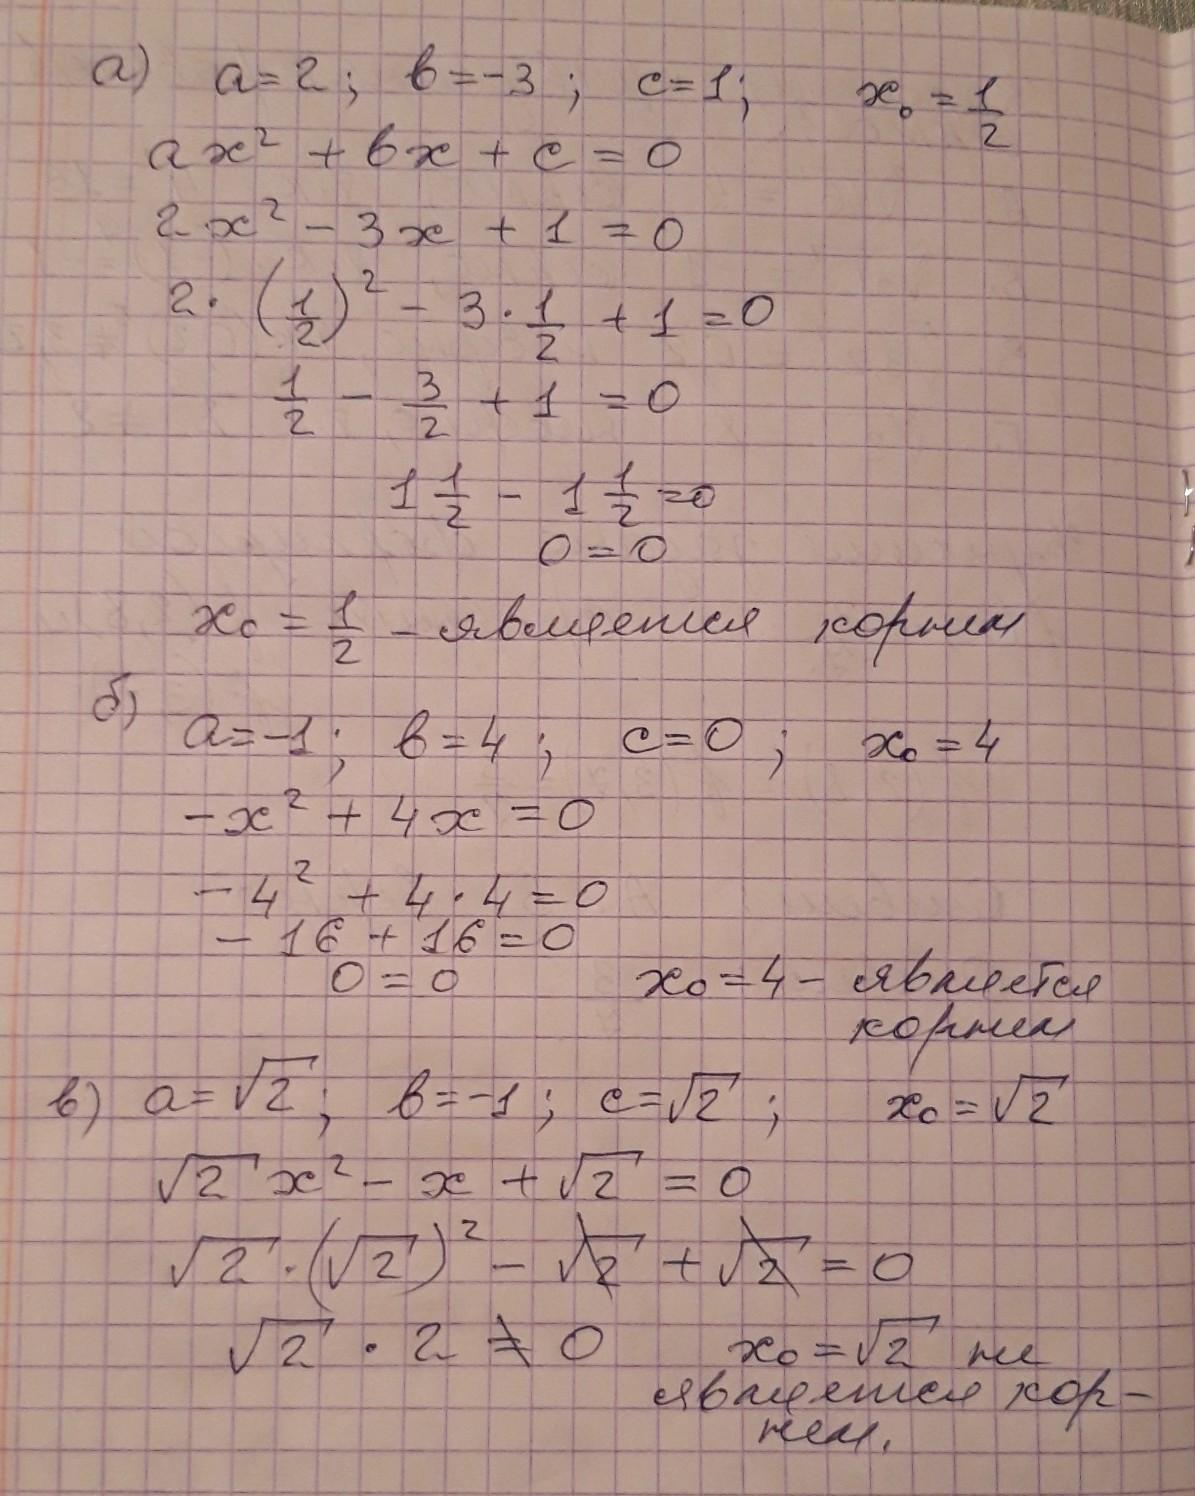 а) a=2; b=-3; c=1; x₀=1/2
ax² + bx + c = 0
2x² - 3x + 1 = 0
2·(1/2)² - 3·1/2 + 1 = 0
1/2 - 3/2 + 1 = 0
1 1/2 - 1 1/2 = 0
0 = 0
x₀ = 1/2 - является корнем
б)
a=-1; b=4; c=0; x₀=4
-x² + 4x = 0
-4² + 4·4 = 0
-16 + 16 = 0
0 = 0 x₀=4 - является
корнем
в) a=√2; b=-1; c=√2; x₀=√2
√2x² - x + √2 = 0
√2·(√2)² - √2 + √2 = 0
√2 · 2 ≠ 0 x₀=√2 не
является кор-
нем.